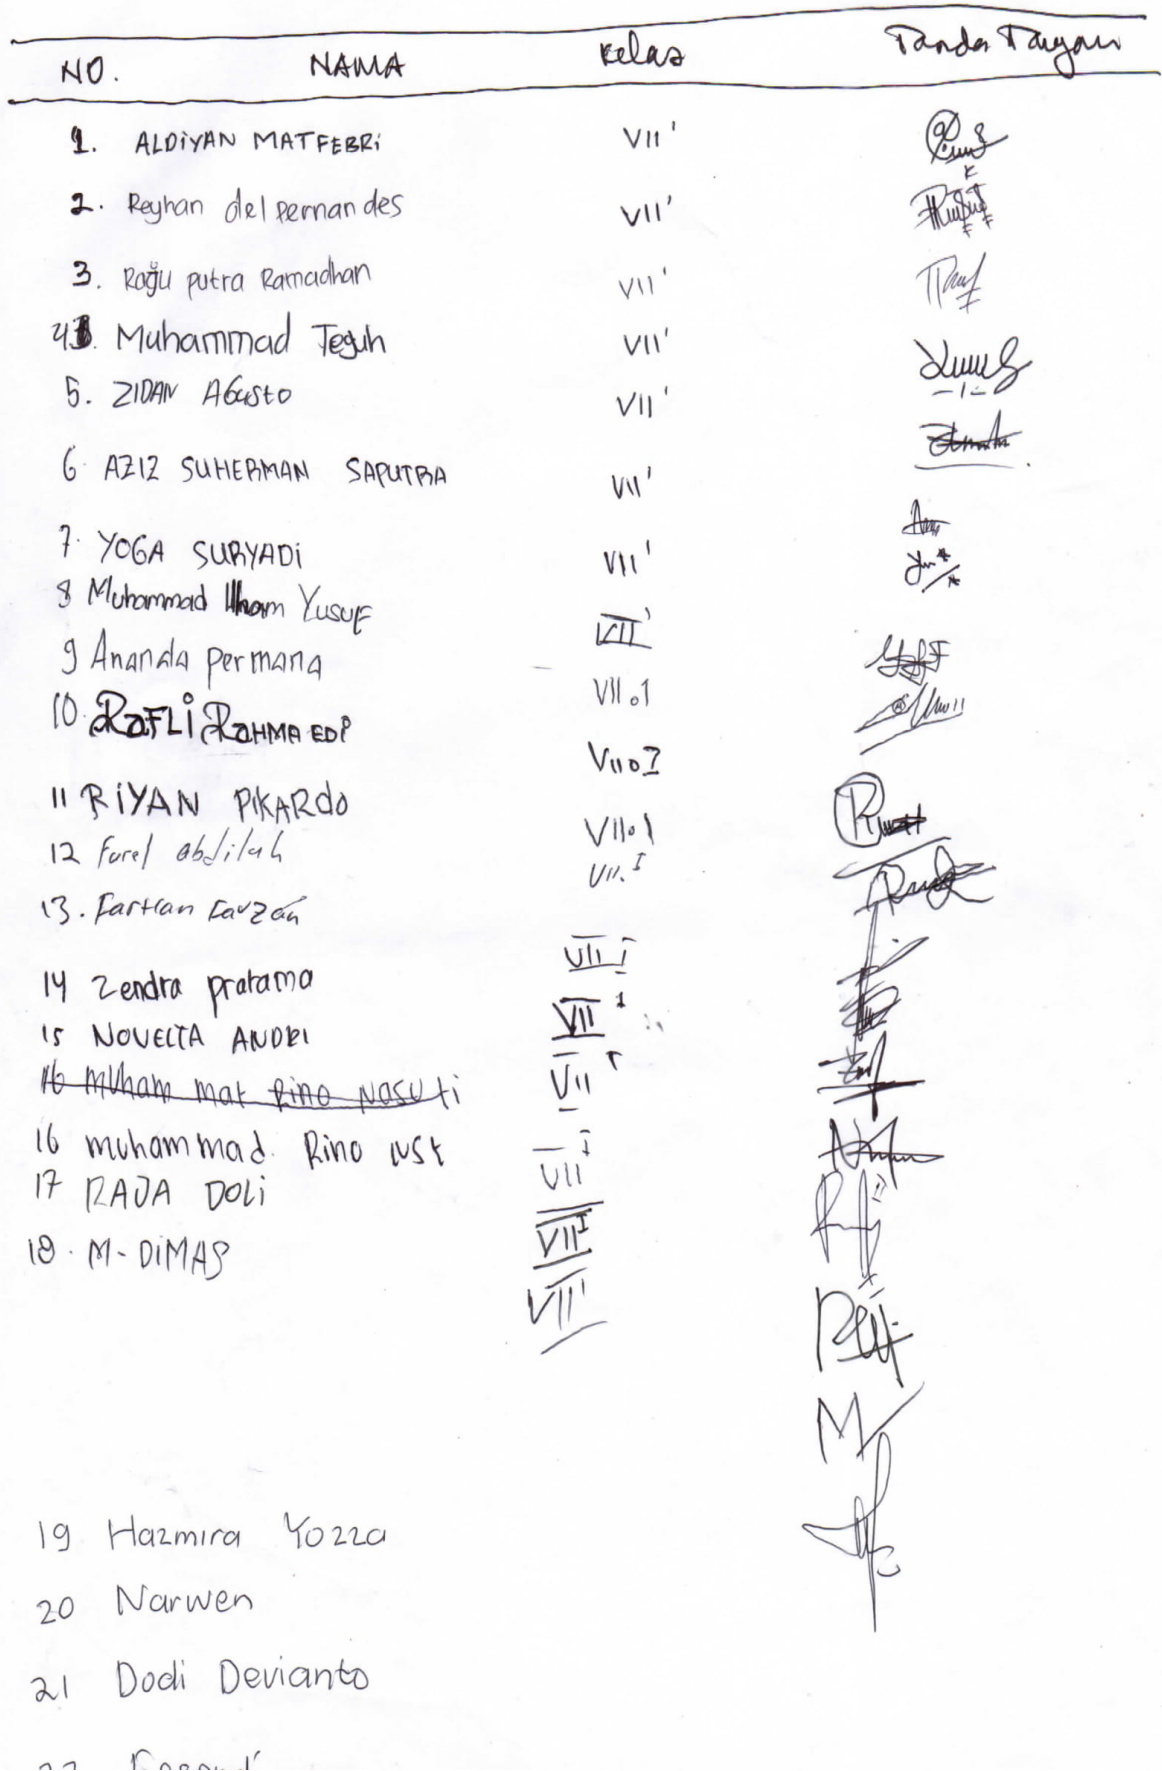 NO. NAMA Kelas Tanda Tangan
1. ALDiYAN MATFEBRi VII '
2. Reyhan delpernandes VII '
3. Rağu putra Ramadhan VII '
4. Muhammad Teguh VII '
5. ZIDAN AGusto VII '
6. AZIZ SUHERMAN SAPUTRA VII '
7. YOGA SURYADi VII '
8 Muhammad Ilham Yusuf VII '
9 Ananda permana VII.1
10. RaFLi RaHMA EDi VII.I
11 RiYAN PIKARdo VII.1
12 Farel abdilah VII.I
13. Farhan Fauzan VII I
14 Zendra pratama VII 1
15 NOVELTA ANDRI VII I
16 muham mat Rino Nasuti
16 muhammad. Rino NSt VII I
17 RAJA DOLi VII I
18. M-DiMAS VII '
19 Hazmira Yozza
20 Narwen
21 Dodi Devianto
22